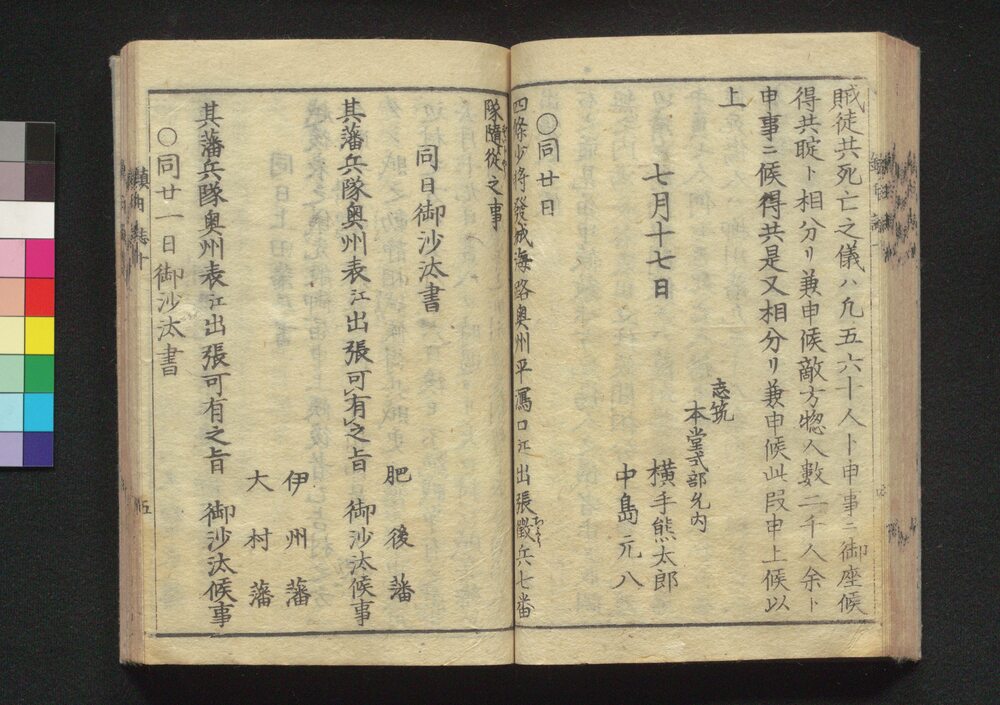 賊徒共死亡之儀ハ凡五六十人ト申事ニ御座候
得共聢ト相分リ兼申候敵方惣人數二千人余ト
申事ニ候得共是又相分リ兼申候此段申上候以
上
志筑
本堂式部允内
横手熊太郎
中島元八
七月十七日
○同廿日
四條少將發城海路奥州平潟口江出張徴兵七番
隊隨從之事
同日御沙汰書
肥後藩
其藩兵隊奥州表江出張可有之旨 御沙汰候事
伊州藩
大村藩
其藩兵隊奥州表江出張可有之旨 御沙汰候事
○同廿一日御沙汰書